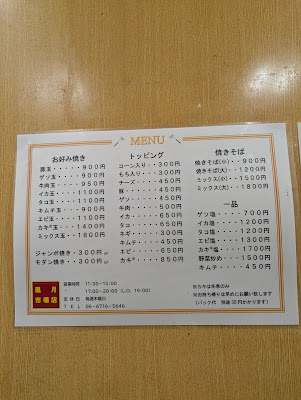 MENU
お好み焼き
豚玉・・・・９００円
ゲソ玉・・・９００円
牛肉玉・・・９５０円
イカ玉・・１１００円
タコ玉・・１１００円
キムチ玉・・９００円
エビ玉・・１１００円
カキ玉・・１４００円
ミックス玉・１８００円
ジャンボ焼き・３００円UP
モダン焼き・・３００円UP
トッピング
コーン入り・・３００円
もち入り・・・３００円
チーズ・・・・４５０円
豚・・・・・・４５０円
ゲソ・・・・・４５０円
牛肉・・・・・５００円
イカ・・・・・６５０円
タコ・・・・・６５０円
ネギ・・・・・３００円
キムチ・・・・４５０円
エビ・・・・・６５０円
カキ・・・・・８５０円
焼きそば
焼きそば(小)・・９００円
焼きそば(大)・１２００円
ミックス(小)・１５００円
ミックス(大)・１８００円
一品
ゲソ塩・・・・７００円
イカ塩・・・１２００円
タコ塩・・・１２００円
エビ塩・・・１３００円
カキ塩・・・１７００円
野菜炒め・・１５００円
キムチ・・・・４５０円
風月
市場店
営業時間 11:30~15:00
17:00~20:00 (L.O. 19:00)
定休日 毎週木曜日
TEL 06-6716-5646
※カキは冬季のみ
※お持ち帰りは早めにお願い致します
(パック代 別途30円かかります)